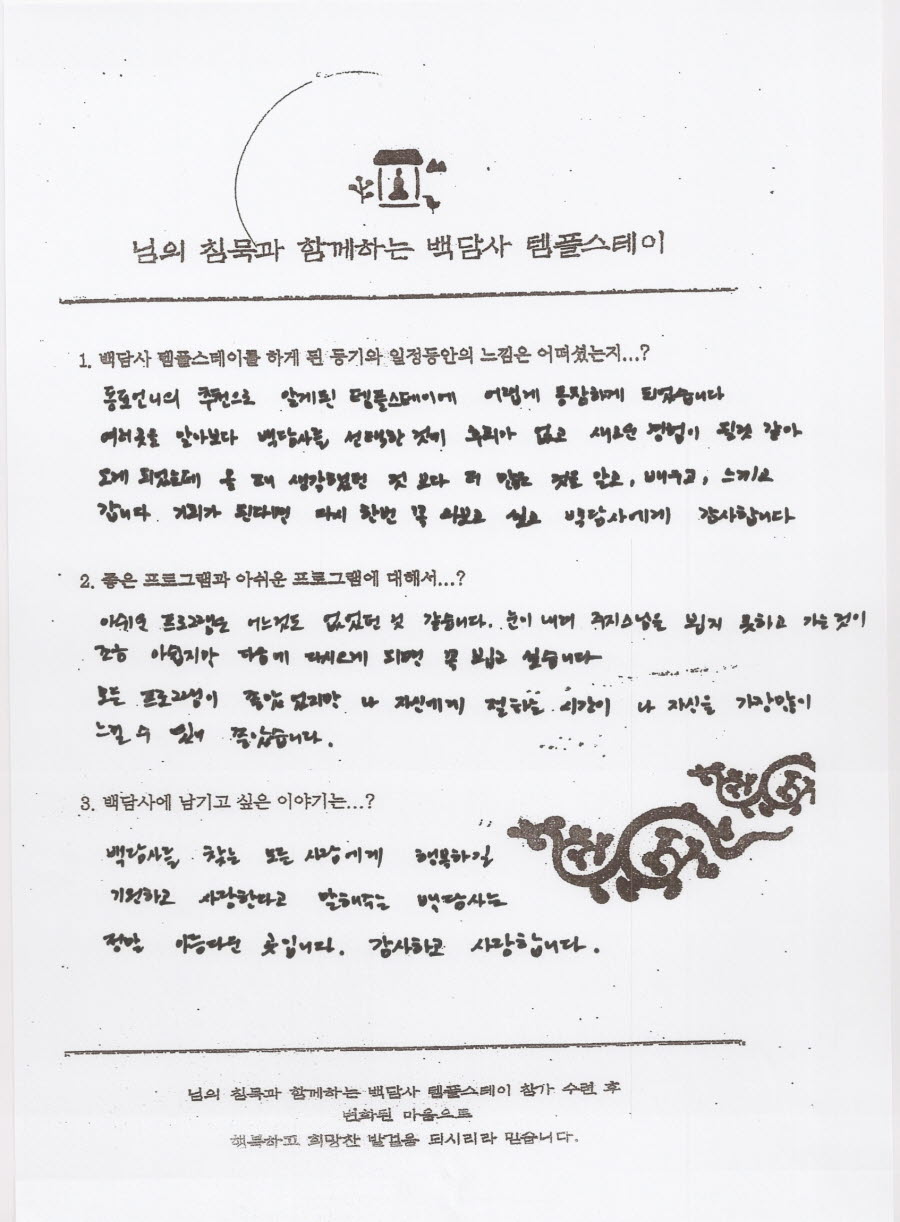 님의 침묵과 함께하는 백담사 템플스테이
1. 백담사 템플스테이를 하게 된 동기와 일정동안의 느낌은 어떠셨는지...?
언니의 추천으로 알게된 템플스테이에 어렵게 동참하게 되었습니다
여러곳을 알아보다 백담사를 선택한 것에 후회가 없고 새로운 경험이 될것 같아
오게 되었는데 올 때 생각했던 것 보다 더 많은 것을 안고, 배우고, 느끼고
갑니다. 기회가 된다면 다시 한번 꼭 와보고 싶고 백담사에게 감사합니다
2. 좋은 프로그램과 아쉬운 프로그램에 대해서...?
아쉬운 프로그램은 어느것도 없었던 것 같습니다. 눈이 내려 주지스님을 뵙지 못하고 가는것이
조금 아쉽지만 다음에 다시오게 되면 꼭 뵙고 싶습니다
모든 프로그램이 좋았었지만 나 자신에게 절하는 시간이 나 자신을 가장많이
느낄 수 있어 좋았습니다.
3. 백담사에 남기고 싶은 이야기는...?
백담사를 찾는 모든 사람에게 행복하길
기원하고 사랑한다고 말해주는 백담사는
정말 아름다운 곳입니다. 감사하고 사랑합니다.
님의 침묵과 함께하는 백담사 템플스테이 참가 수련 후
변화된 마음으로
행복하고 희망찬 발걸음 되시리라 믿습니다.